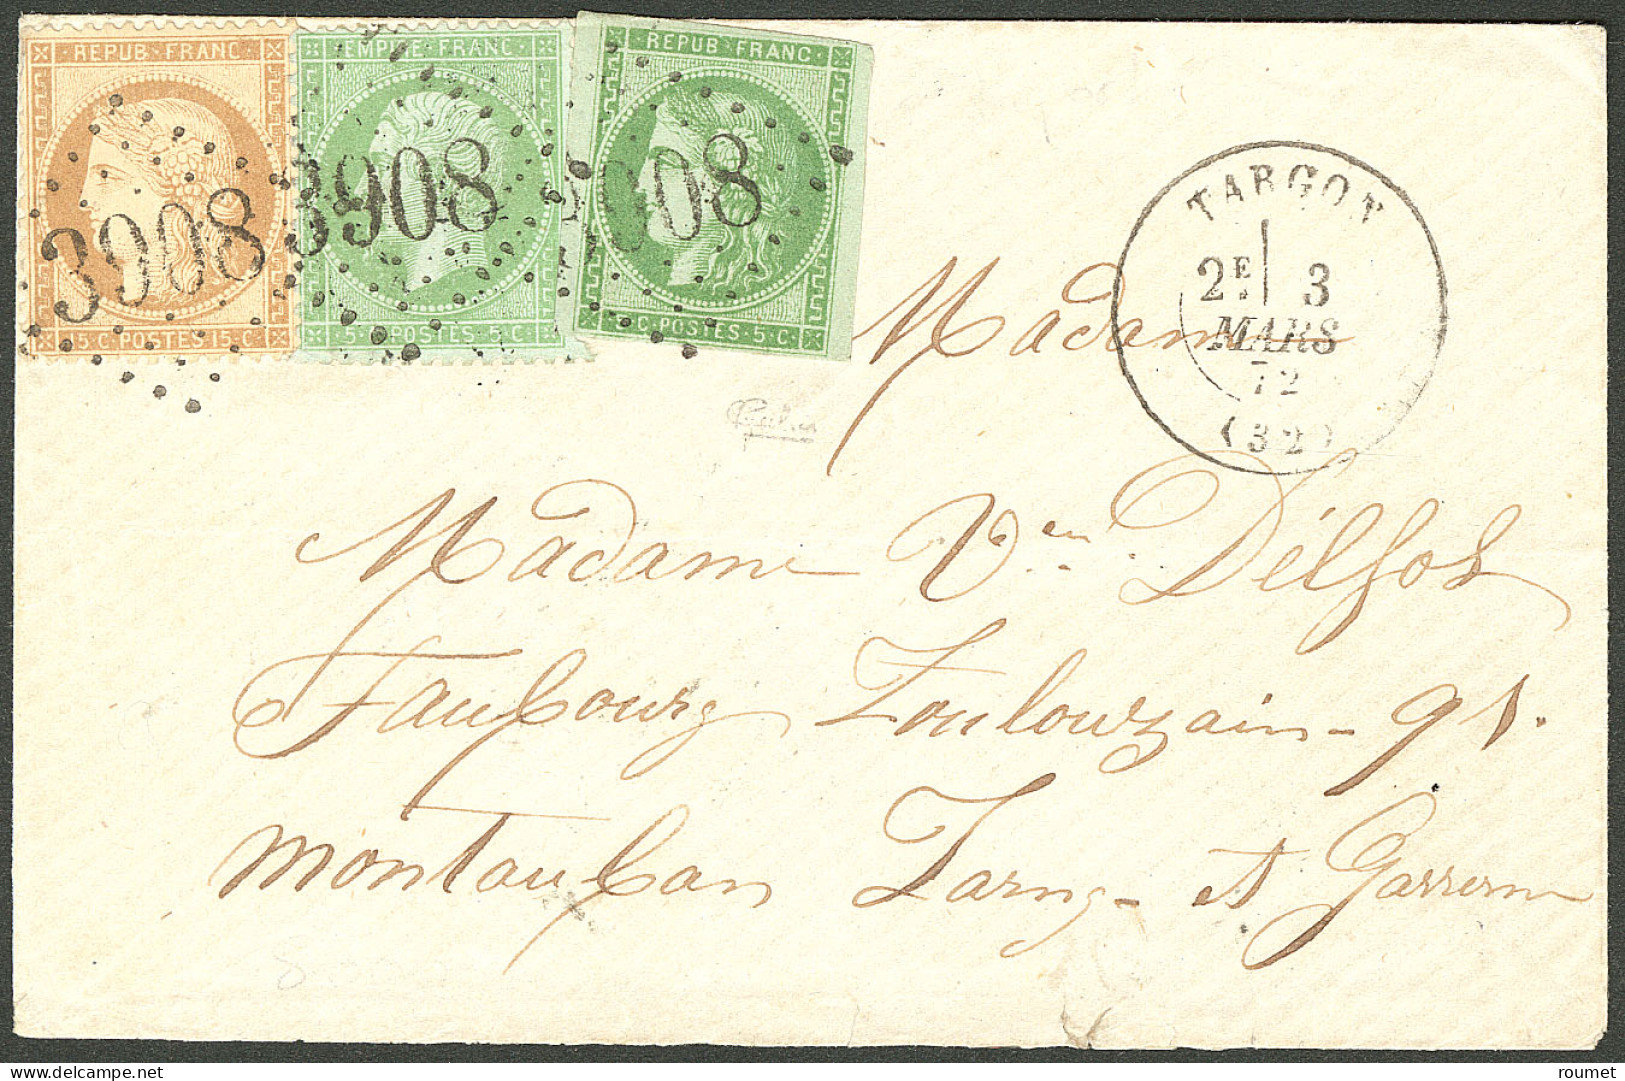 REPUB·FRANC·
EMPIRE·FRANC·
REPUB·FRANC·
3908
3908
3908
15·C·POSTES·15·C·
5·C·POSTES·5·C·
5·C·POSTES·5·C·
TARGON
2E 3
MARS
72
(32)
Madame
Madame Vve Délfos
Faubourg Toulouzain - 91.
Montauban Tarn - et Garronne
roumet